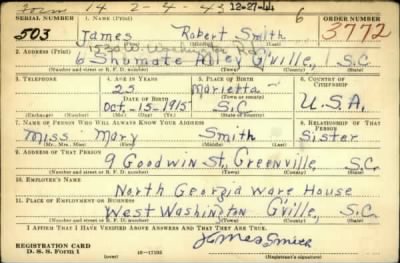 Form 14 2-4-43 12-27-44 6
SERIAL NUMBER 1. NAME (Print) ORDER NUMBER
503 James Robert Smith 3772
1530 W. Washington
2. ADDRESS (Print)
6 Shumate Alley G'ville, S.C.
(Number and street or R. F. D. number) (Town) (County) (State)
3. TELEPHONE 4. AGE IN YEARS 5. PLACE OF BIRTH 6. COUNTRY OF CITIZENSHIP
25 Marietta
DATE OF BIRTH (Town or county)
Oct.-15-1915 S.C U.S.A.
(Exchange) (Number) (Mo.) (Day) (Yr.) (State or country)
7. NAME OF PERSON WHO WILL ALWAYS KNOW YOUR ADDRESS 8. RELATIONSHIP OF THAT PERSON
Miss Mary Smith Sister
(Mr., Mrs., Miss) (First) (Middle) (Last)
9. ADDRESS OF THAT PERSON
9 Goodwin St., Greenville, S.C.
(Number and street or R. F. D. number) (Town) (County) (State)
10. EMPLOYER'S NAME
North Georgia Ware House
11. PLACE OF EMPLOYMENT OR BUSINESS
West Washington G'ville, S.C.
(Number and street or R. F. D. number) (Town) (County) (State)
I AFFIRM THAT I HAVE VERIFIED ABOVE ANSWERS AND THAT THEY ARE TRUE.
REGISTRATION CARD
D. S. S. Form 1 16-17105 (Registrant's signature)
James Smith